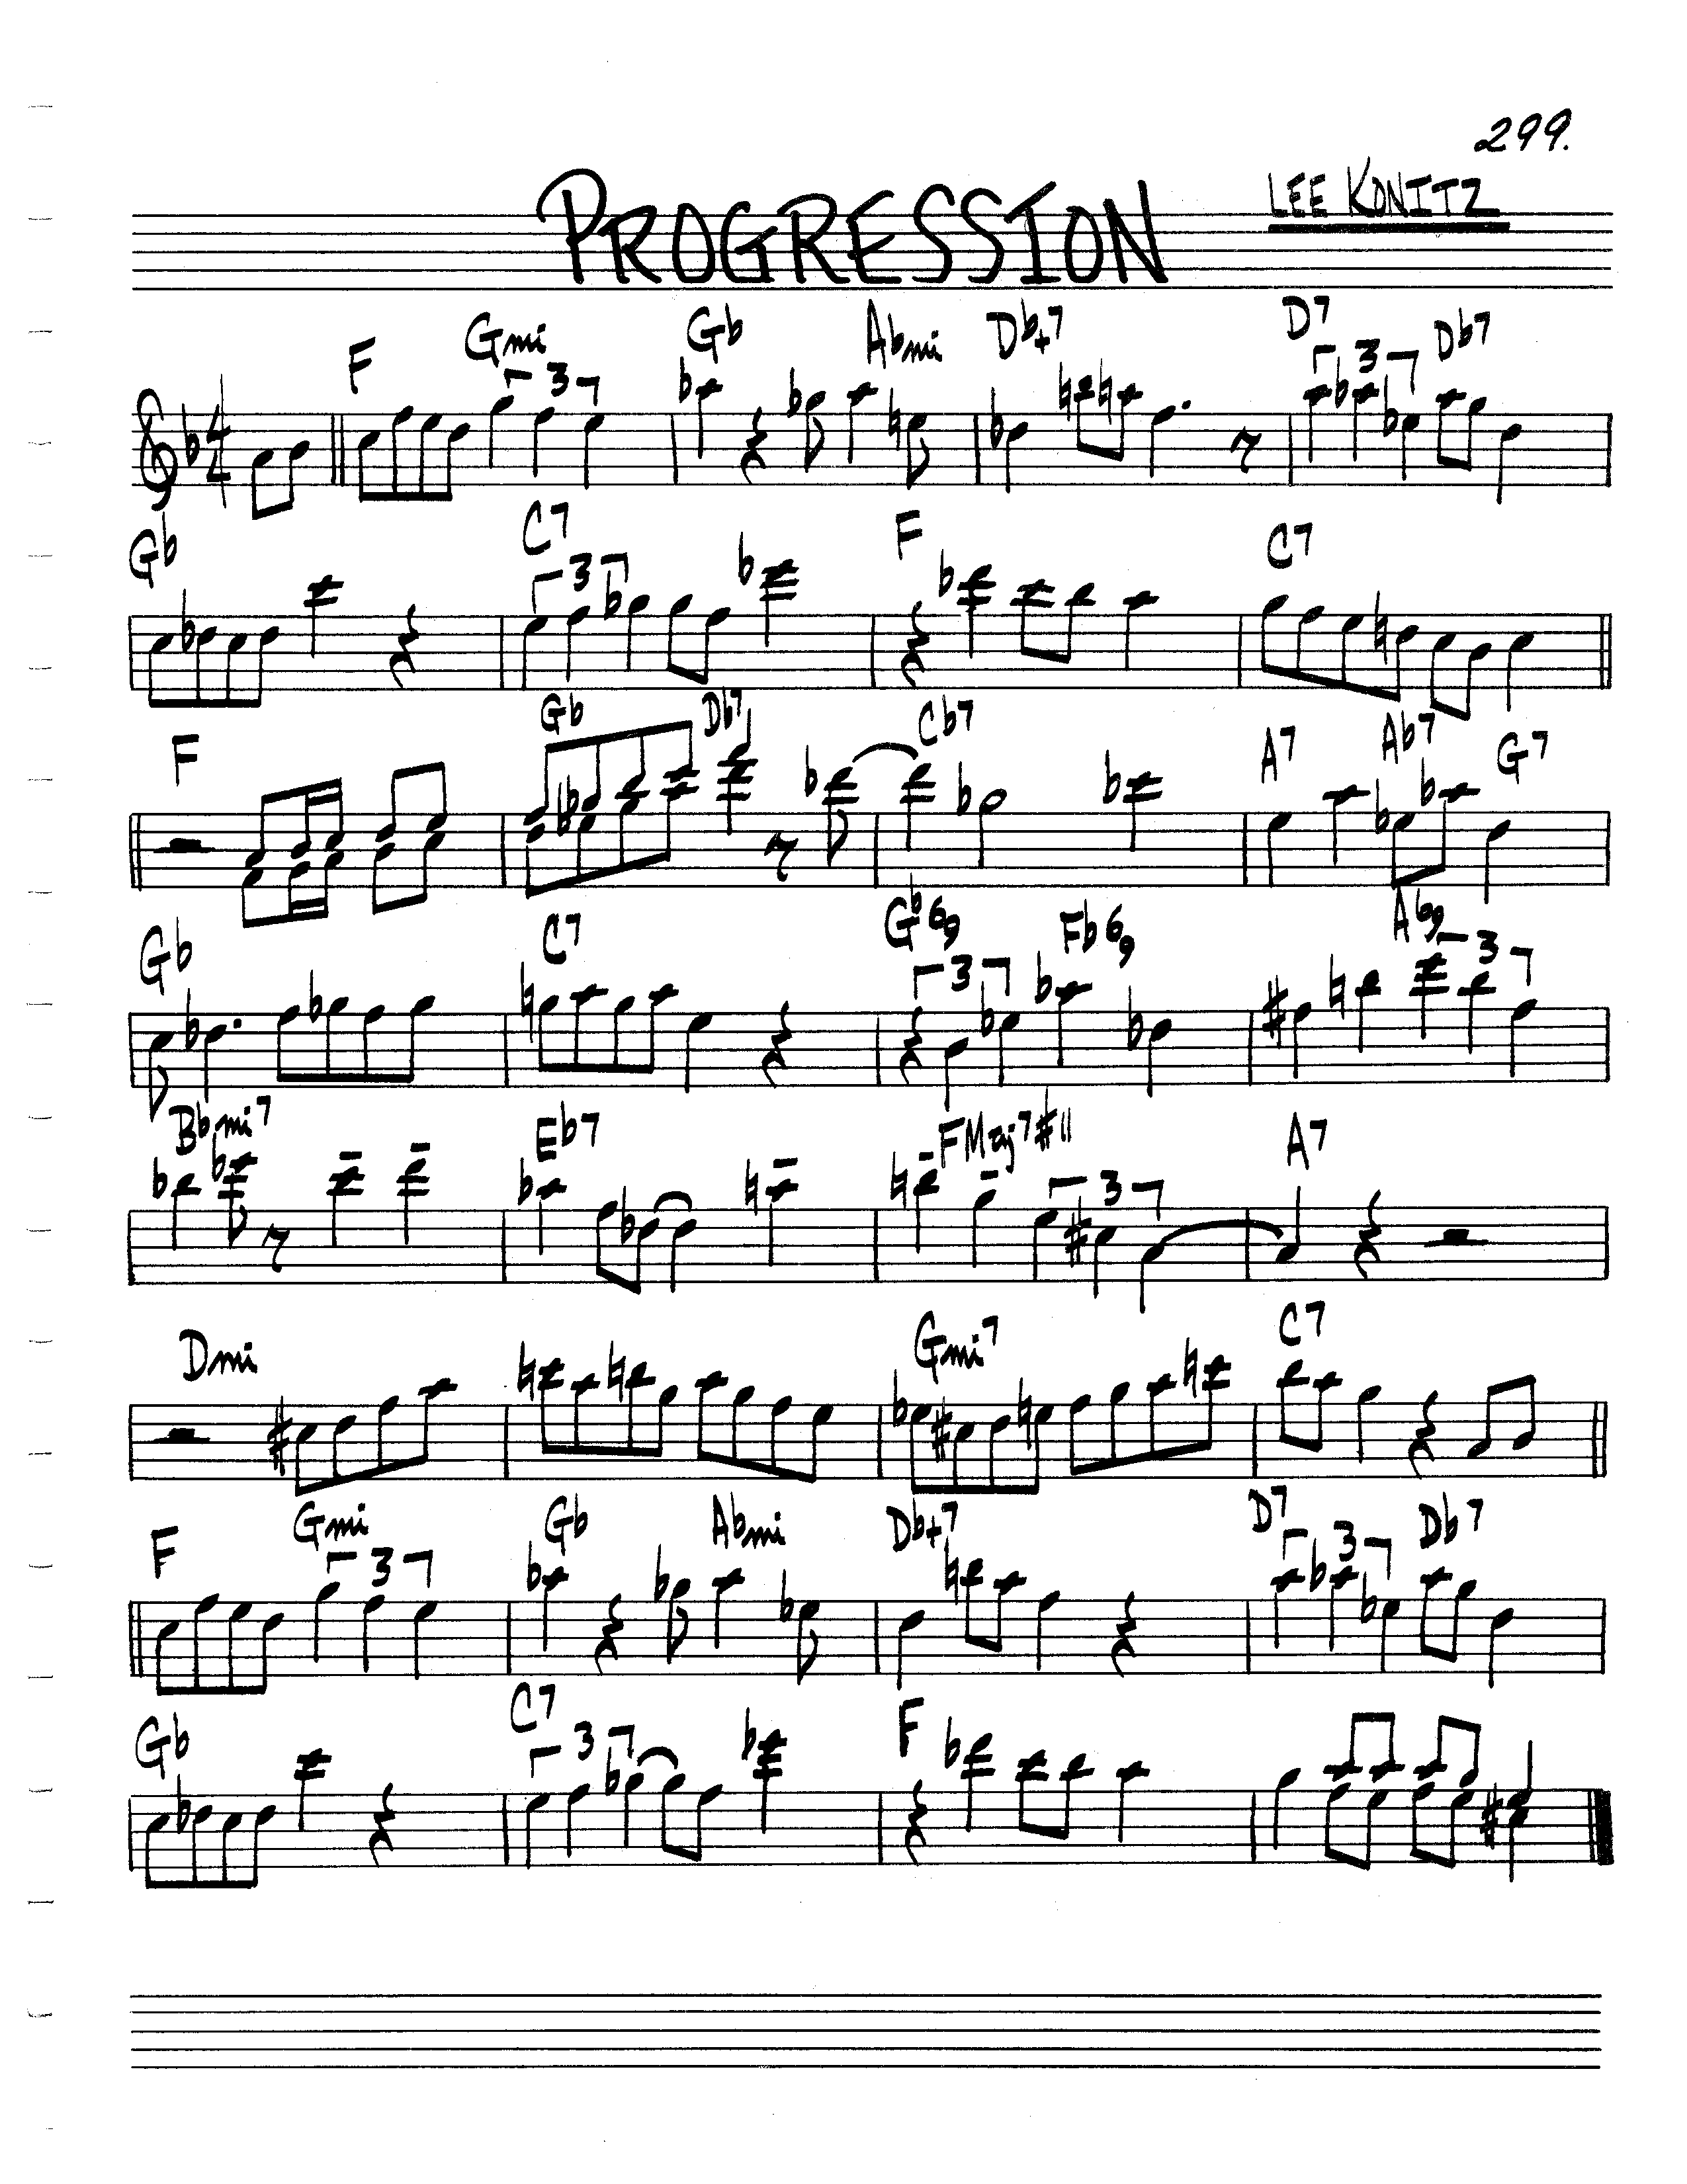 299.
PROGRESSION
LEE KONITZ
F Gmi Gb Abmi Db+7 D7 Db7
3 3
4
4
Gb C7 F C7
3
F Gb Db7 Cb7 A7 Ab7 G7
Gb C7 Gb69 Fb69 Ab9
3 3
Bbmi7 Eb7 FMaj7#11 A7
3
Dmi Gmi7 C7
F Gmi Gb Abmi Db+7 D7 Db7
3 3
Gb C7 F
3